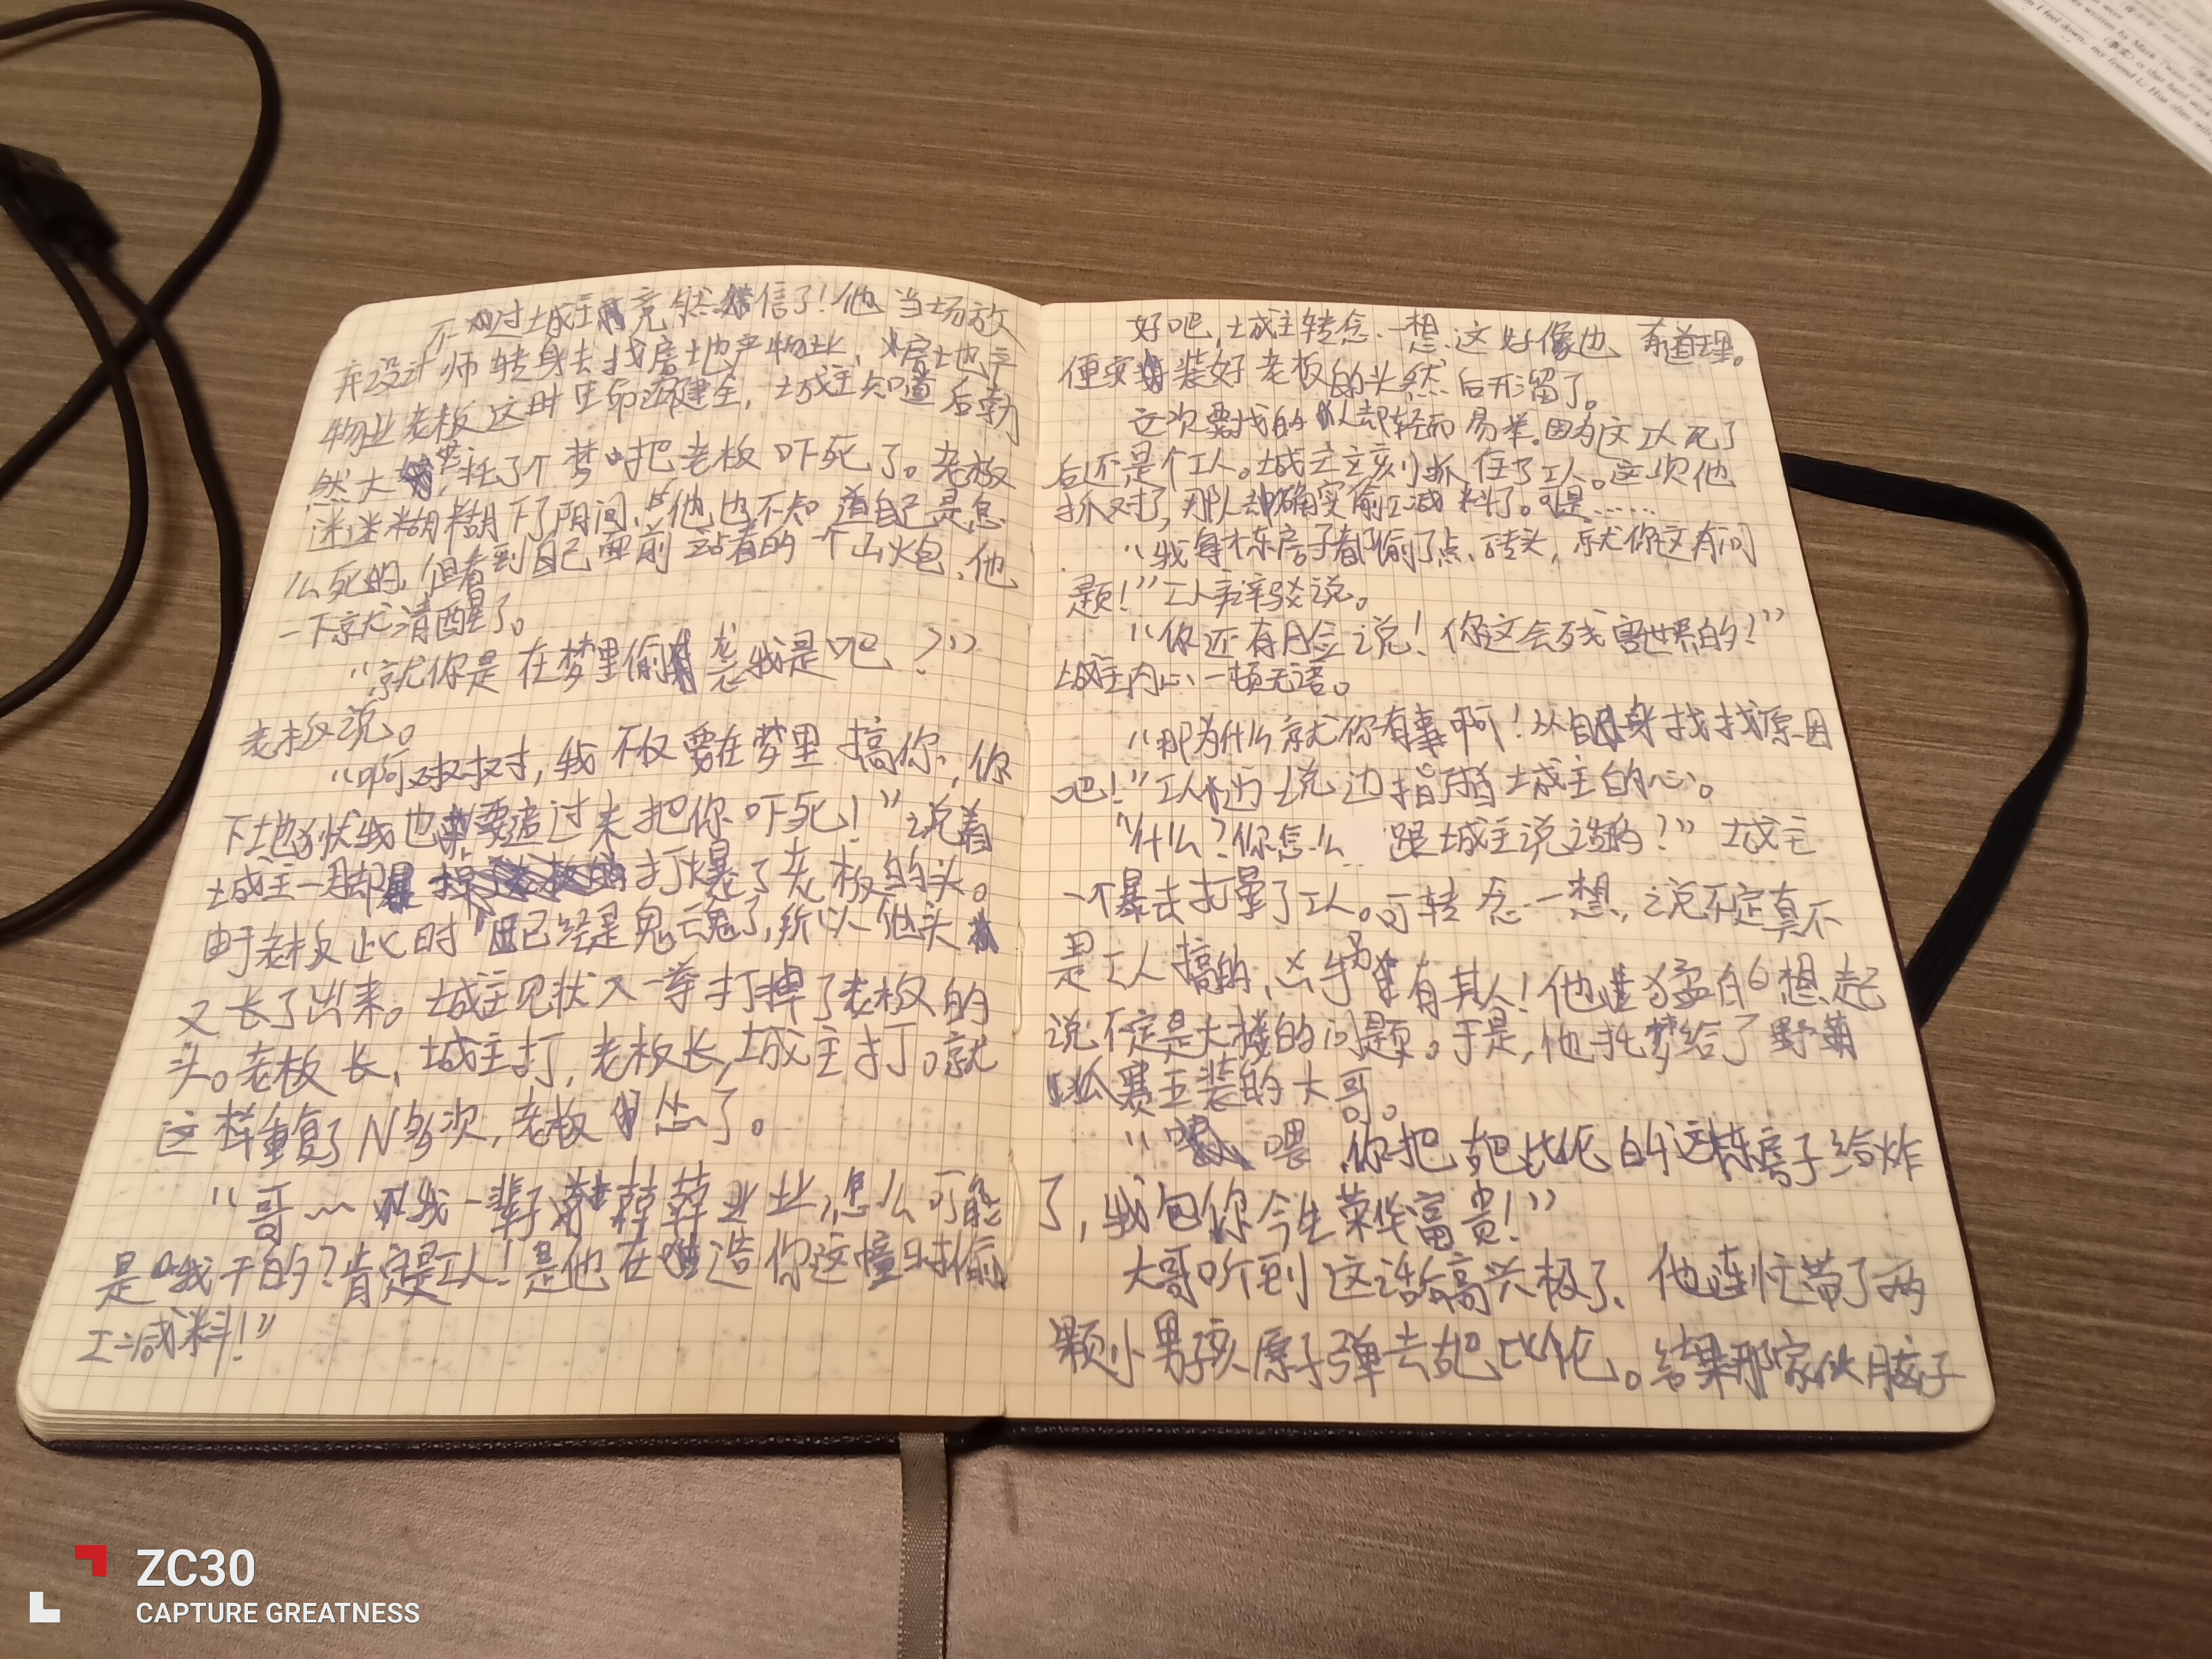 不过城主竟然信了!他当场放
弃设计师转身去找房地产物业,房地产
物业老板这时生命还健全,城主知道后勃
然大怒,托了个梦把老板吓死了。老板
迷迷糊糊下了阴间,他也不知道自己是怎
么死的,但看到自己面前站着的一个山炮,他
一下就清醒了。
“就你是在梦里偷袭我是吧?”
老板说。
“啊对对对,我不仅要在梦里搞你,你
下地狱我也要追过来把你吓死!”说着
城主一脚打爆了老板的头。
由于老板此时已经是鬼魂了,所以他头
又长了出来。城主见状又一拳打掉了老板的
头。老板长,城主打,老板长,城主打。就
这样重复了N多次,老板怂了。
“哥~我一辈子兢兢业业,怎么可能
是我干的?肯定是工人!是他在造你这幢时偷
工减料!”
好吧,城主转念一想,这好像也有道理。
便安装好老板的头然后开溜了。
这次要找的人却轻而易举。因为这工人死了
后还是个工人。城主立刻抓住了工人。这次他
抓对了,那人却确实偷工减料了。可是……
“我每栋房子都偷了点砖头,就你这有问
题!”工人辩驳说。
“你还有脸说!你这会残害世界的!”
城主内心一顿无语。
“那为什么就你有事啊!从自身找找原因
吧!”工人边说边指着城主的心。
“什么?你怎么 跟城主说话的?”城主
一个暴击打晕了工人。可转念一想,说不定真不
是工人搞的,凶手另有其人!他猛的想起
说不定是大楼的问题。于是,他托梦给了野菊
赛五装的大哥。
“喂,你把芭比伦的这栋房子给炸
了,我包你今生荣华富贵!”
大哥听到这话高兴极了,他连忙带了两
颗小男孩原子弹去芭比伦。结果那家伙脑子
ZC30
CAPTURE GREATNESS